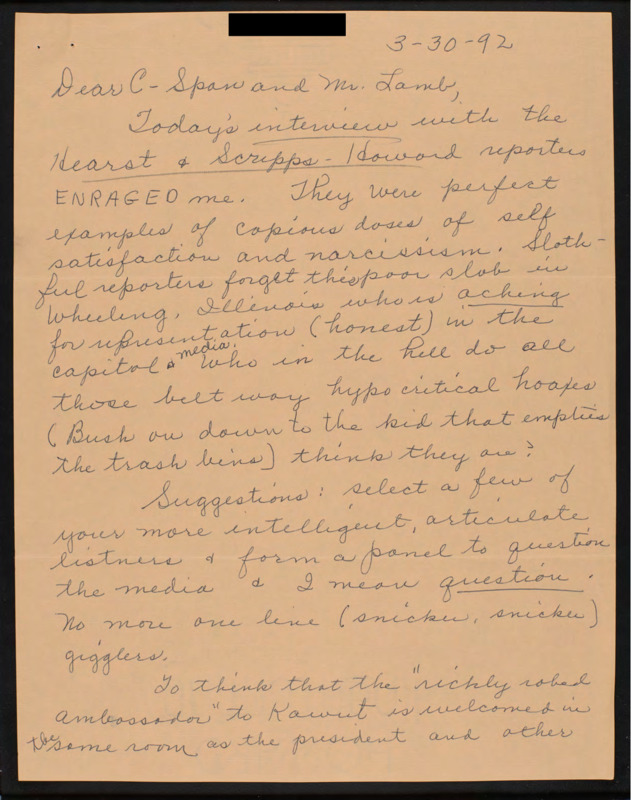 3-30-92
Dear C-Span and Mr. Lamb,
Today's interview with the
Hearst & Scripps-Howard reporters
ENRAGED me. They were perfect
examples of copious doses of self
satisfaction and narcissism. Sloth-
ful reporters forget this poor slob in
Wheeling, Illinois who is aching
for representation (honest) in the
capitol & media. Who in the hell do all
those belt way hypocritical hoaxes
(Bush on down to the kid that empties
the trash bins) think they are?
Suggestions: select a few of
your more intelligent, articulate
listners & form a panel to question
the media & I mean question.
No more one line (snicker, snicker)
gigglers.
To think that the "richly robed
ambassador" to Kawut is welcomed in
the same room as the president and other